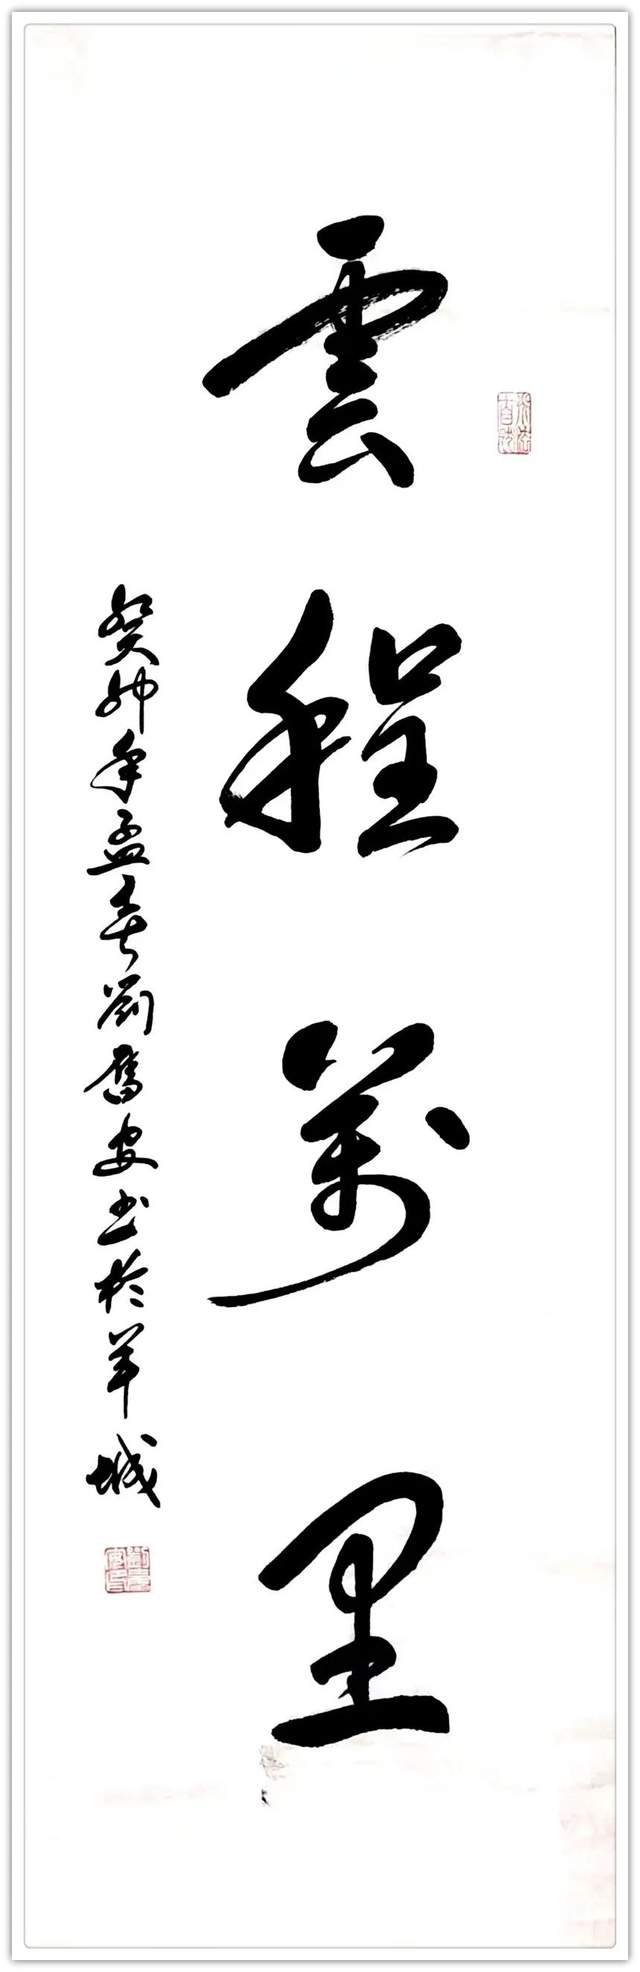 雲程萬里
癸卯年孟春劉舊安书於羊城